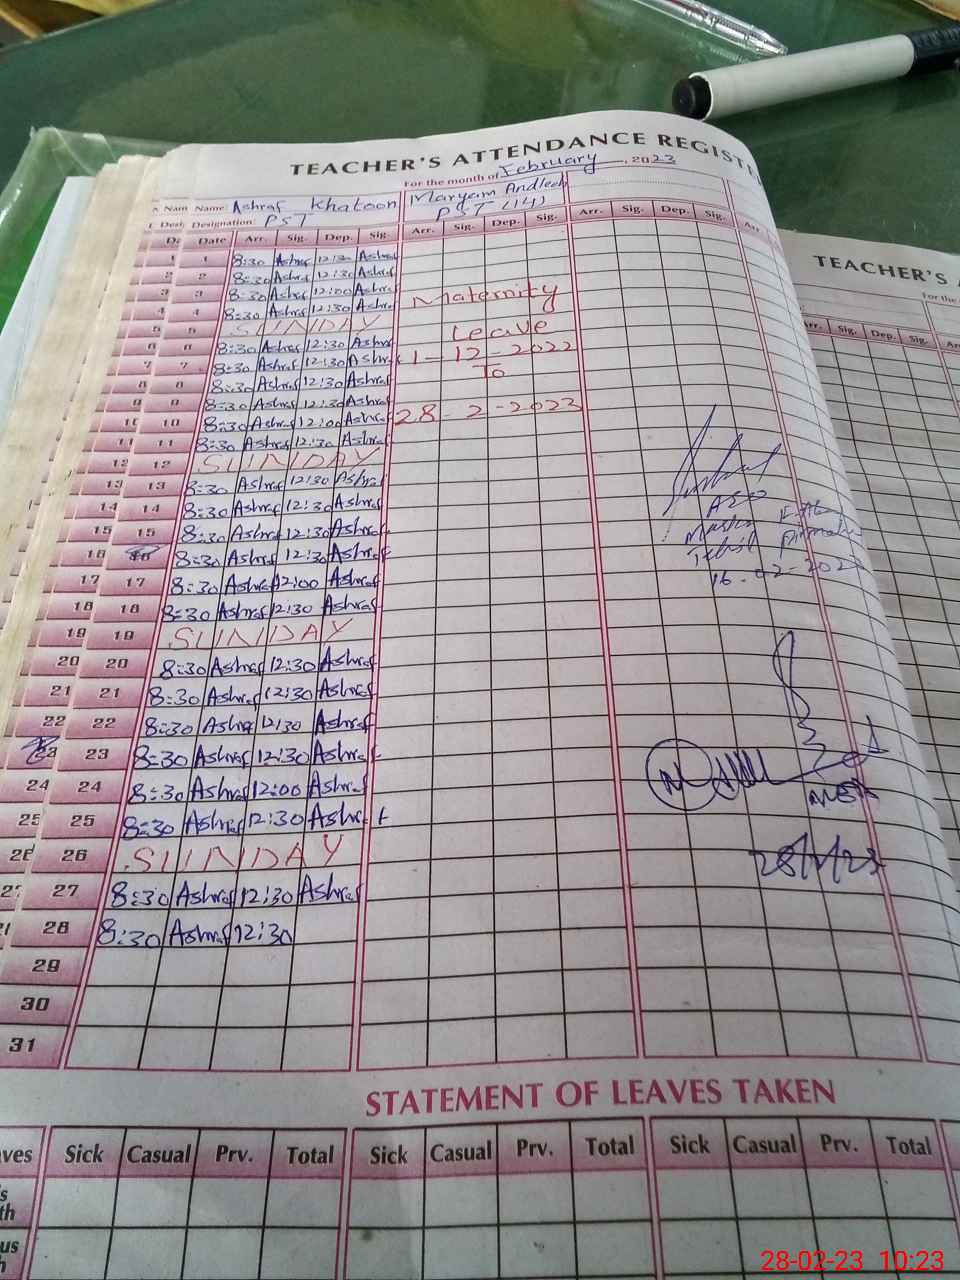 TEACHER'S ATTENDANCE REGISTE
For the month of February, 2023
Name: Ashraf Khatoon Maryam Andleeb
Designation: PST PST (14)
Date Arr. Sig. Dep. Sig. Arr. Sig. Dep. Sig. Arr. Sig. Dep. Sig. Arr.
1 8:30 Ashraf 12:30 Ashraf
2 8:30 Ashraf 12:30 Ashraf
3 8:30 Ashraf 12:00 Ashraf Maternity
4 8:30 Ashraf 12:30 Ashraf
5 SUNDAY Leave
6 8:30 Ashraf 12:30 Ashraf
7 8:30 Ashraf 12:30 Ashraf 1-12-2022
8 8:30 Ashraf 12:30 Ashraf To
9 8:30 Ashraf 12:30 Ashraf
10 8:30 Ashraf 12:00 Ashraf 28-2-2023
11 8:30 Ashraf 12:30 Ashraf
12 SUNDAY
13 8:30 Ashraf 12:30 Ashraf
14 8:30 Ashraf 12:30 Ashraf
15 8:30 Ashraf 12:30 Ashraf
16 8:30 Ashraf 12:30 Ashraf
17 8:30 Ashraf 12:00 Ashraf
18 8:30 Ashraf 12:30 Ashraf
19 SUNDAY
20 8:30 Ashraf 12:30 Ashraf
21 8:30 Ashraf 12:30 Ashraf
22 8:30 Ashraf 12:30 Ashraf
23 8:30 Ashraf 12:30 Ashraf
24 8:30 Ashraf 12:00 Ashraf
25 8:30 Ashraf 12:30 Ashraf
26 SUNDAY
27 8:30 Ashraf 12:30 Ashraf
28 8:30 Ashraf 12:30
29
30
31
AEO
Tehsil
16-02-202
28/2/23
STATEMENT OF LEAVES TAKEN
Sick Casual Prv. Total Sick Casual Prv. Total Sick Casual Prv. Total
TEACHER'S
For the
Sig. Dep. Sig.
28-02-23 10:23